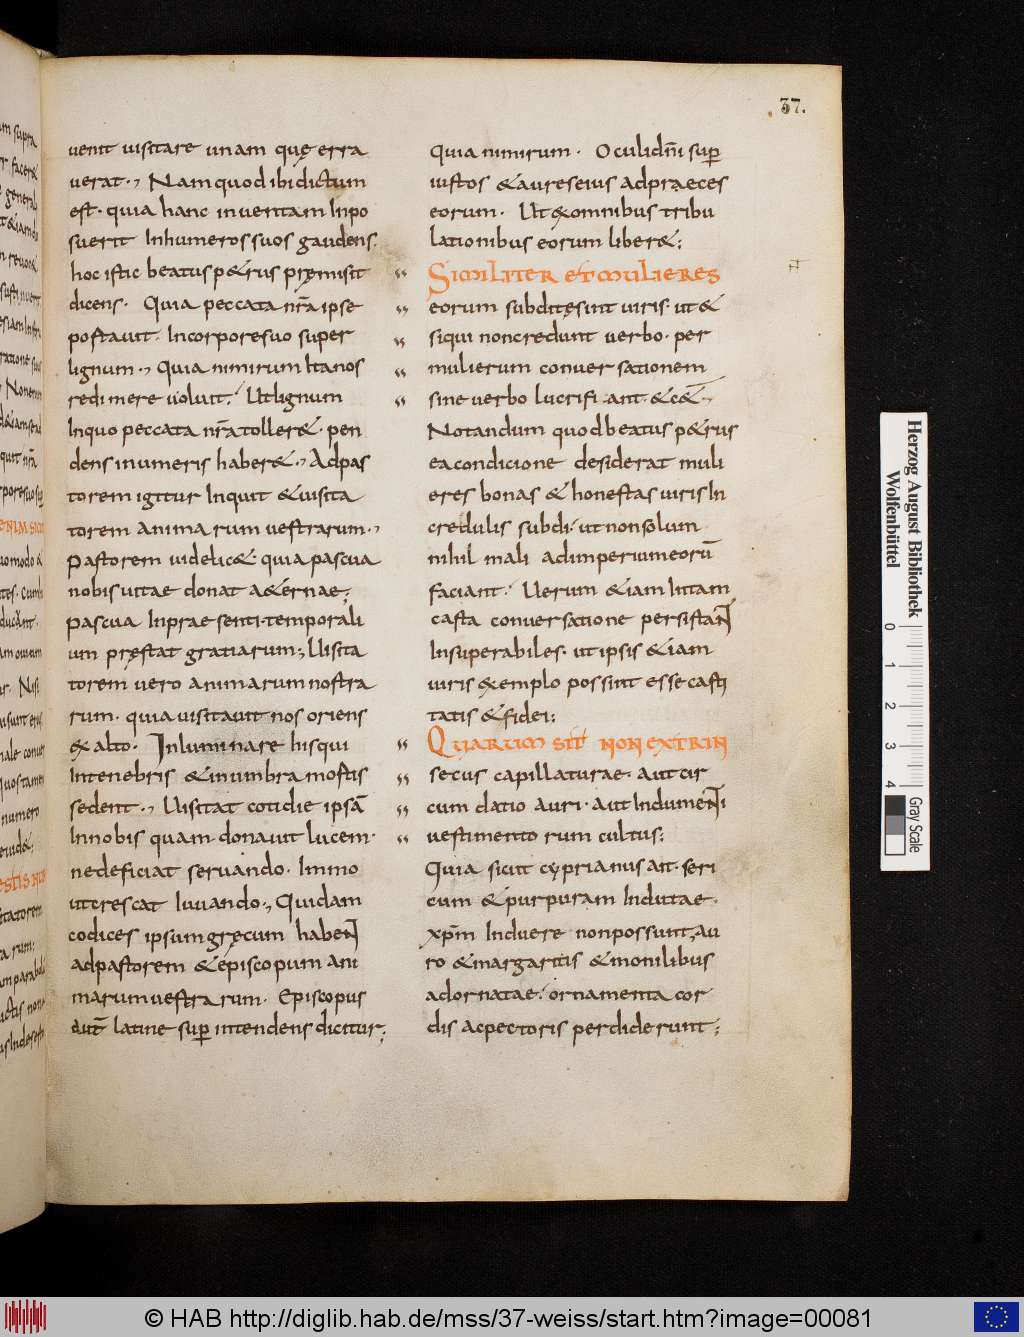 37.
uenit uisitare unam quę erra
uerat., Nam quod ibi dictum
est. quia hanc inuentam Inpo
suerit Inhumeros suos gaudens.
hoc istic beatus p&rus pręmisit
dicens. Quia peccata nr̄a ipse
postauit. Incorpore suo super
lignum., Quia nimirum Ita nos
redimere uoluit. Ut lignum
Inquo peccata nr̄a toller&. pen
dens inumeris haber&., Ad pas
torem igitur Inquit & uisita
torem anima rum uestrarum.,
Pastorem uidelic& quia pascua
nobis uitae donat a&ernae;
pascua Inprae senti. temporali
um pręstat gratiarum;, Uisita
torem uero animarum nostra
rum. quia uisitauit nos oriens
ex alto. Inluminare his qui
Intenebris & inumbra mostis
sedent., Uisitat cotidie ipsā
Innobis quam. donauit lucem.
ne deficiat seruando. Immo
ut crescat Iuuando., Quidam
codices ipsum gręcum habent
ad pastorem & episcopum ani
marum uestrarum. Episcopus
aut̄ latine sup̄ intendens dicitur;
quia nimirum. Oculi dn̄i sup̄
iustos & aures eius ad praeces
eorum. Ut ex omnibus tribu
lationibus eorum liber&;
Similiter et mulieres
eorum subditę sint uiris. ut &
si qui non credunt uerbo. per
mulierum conuersationem
sine uerbo lucrifiant. & c&̄.,
Notandum quod beatus p&rus
ea condicione desiderat muli
eres bonas & honestas uiris In
credulis subdi. ut non solum
nihil mali ad imperium eorū
faciant. Uerum &iam Intam
casta conuersatione persistant
Insuperabiles. ut ipsis &iam
uiris exemplo possint esse casti
tatis & fidei;
Quarum sit non extrin
secus capillaturae. aut cir
cum datio auri. aut Indumenti
uestimento rum cultus;
Quia sicut cyprianus ait. seri
cum & purpuram Indutae.
xp̄m Induere non possunt, au
ro & margaritis & monilibus
adornatae. ornamenta cor
dis ac pectoris perdiderunt;
Herzog August Bibliothek
Wolfenbüttel
0 1 2 3 4
Gray Scale
© HAB http://diglib.hab.de/mss/37-weiss/start.htm?image=00081